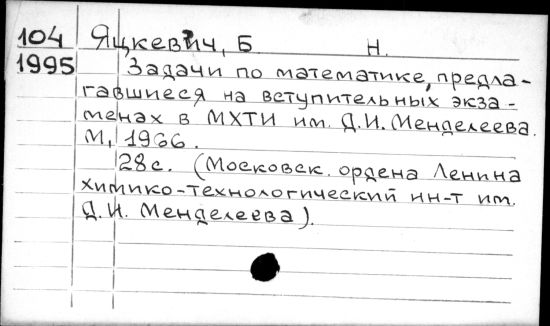 104 Яцкевич, Б. Н.
1995 Задачи по математике, предла-
гавшиеся на вступительных экза-
менах в МХТИ им. Д.И. Менделеева.
М, 1966.
28с. (Московск. ордена Ленина
химико-технологический ин-т им.
Д.И. Менделеева).